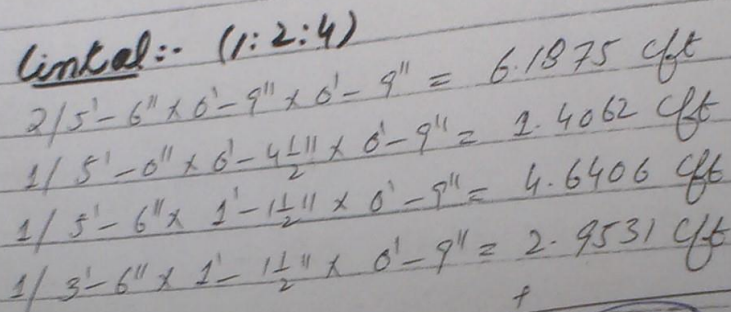 Lintal:- (1:2:4)
2/5'-6" x 0'-9" x 0'-9" = 6.1875 cft
1/5'-0" x 0'-4 1/2" x 0'-9" = 1.4062 cft
1/5'-6" x 1'-1 1/2" x 0'-9" = 4.6406 cft
1/3'-6" x 1'-1 1/2" x 0'-9" = 2.9531 cft
+